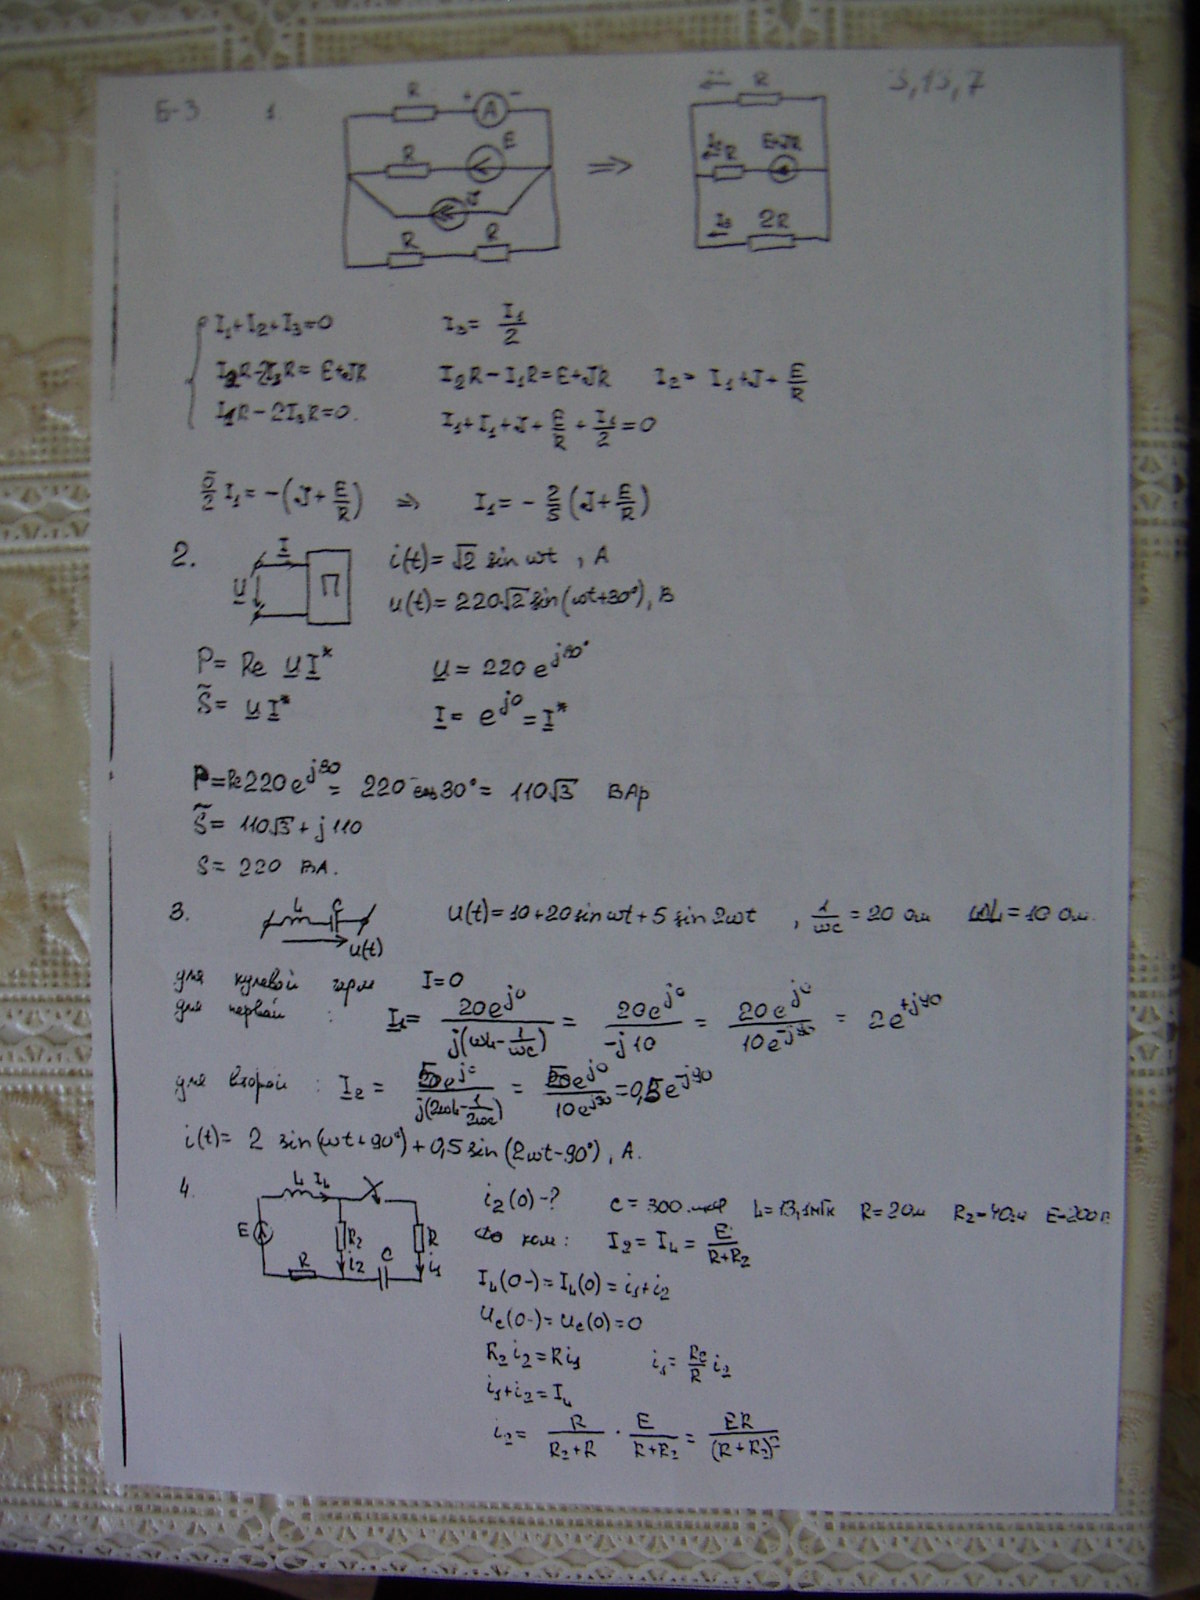 Б-3 1 3,15,7
R + A - R
R E I₂ R E+JR
J
R R I₃ 2R
I₁+I₂+I₃=0 I₃= I₁/2
I₂R-I₁R= E+JR I₂R-I₁R=E+JR I₂= I₁+J+ E/R
I₁R-2I₃R=0. I₁+I₁+J+ E/R + I₁/2 =0
5/2 I₁=-(J+ E/R) => I₁= - 2/5 (J+ E/R)
2. I U П i(t)= √2 sin ωt , A
u(t)= 220√2 sin(ωt+30°), В
P= Re U I* U = 220 e^j30°
S̃= U I* I= e^j0 = I*
P=Re220e^j30 = 220 cos30°= 110√3 ВАр
S̃= 110√3 + j 110
S= 220 ВА.
3. L C u(t) u(t)= 10+20 sin ωt + 5 sin 2ωt , 1/ωC = 20 Ом ωL = 10 Ом.
для нулевой гарм I=0
для первой : I₁= 20e^j0 / j(ωL- 1/ωC) = 20e^j0 / -j10 = 20e^j0 / 10e^-j90 = 2e^+j90
для второй : I₂ = 5e^j0 / j(2ωL- 1/2ωC) = 5e^j0 / 10e^j90 =0,5e^-j90
i(t)= 2 sin(ωt+90°)+0,5 sin(2ωt-90°), A.
4. L I_L i₂(0)-? C = 300 мкФ L=13,1мГн R=20м R₂=40м E=200В
E R₂ R i₂ C i₁ R До ком: I₂ = I_L = E/(R+R₂)
I_L(0-)= I_L(0) = i₁+i₂
U_C(0-)= U_C(0)=0
R₂ i₂ = R i₁ i₁= R₂/R i₂
i₁+i₂= I_L
i₂= R/(R₂+R) · E/(R+R₂) = ER/(R+R₂)²